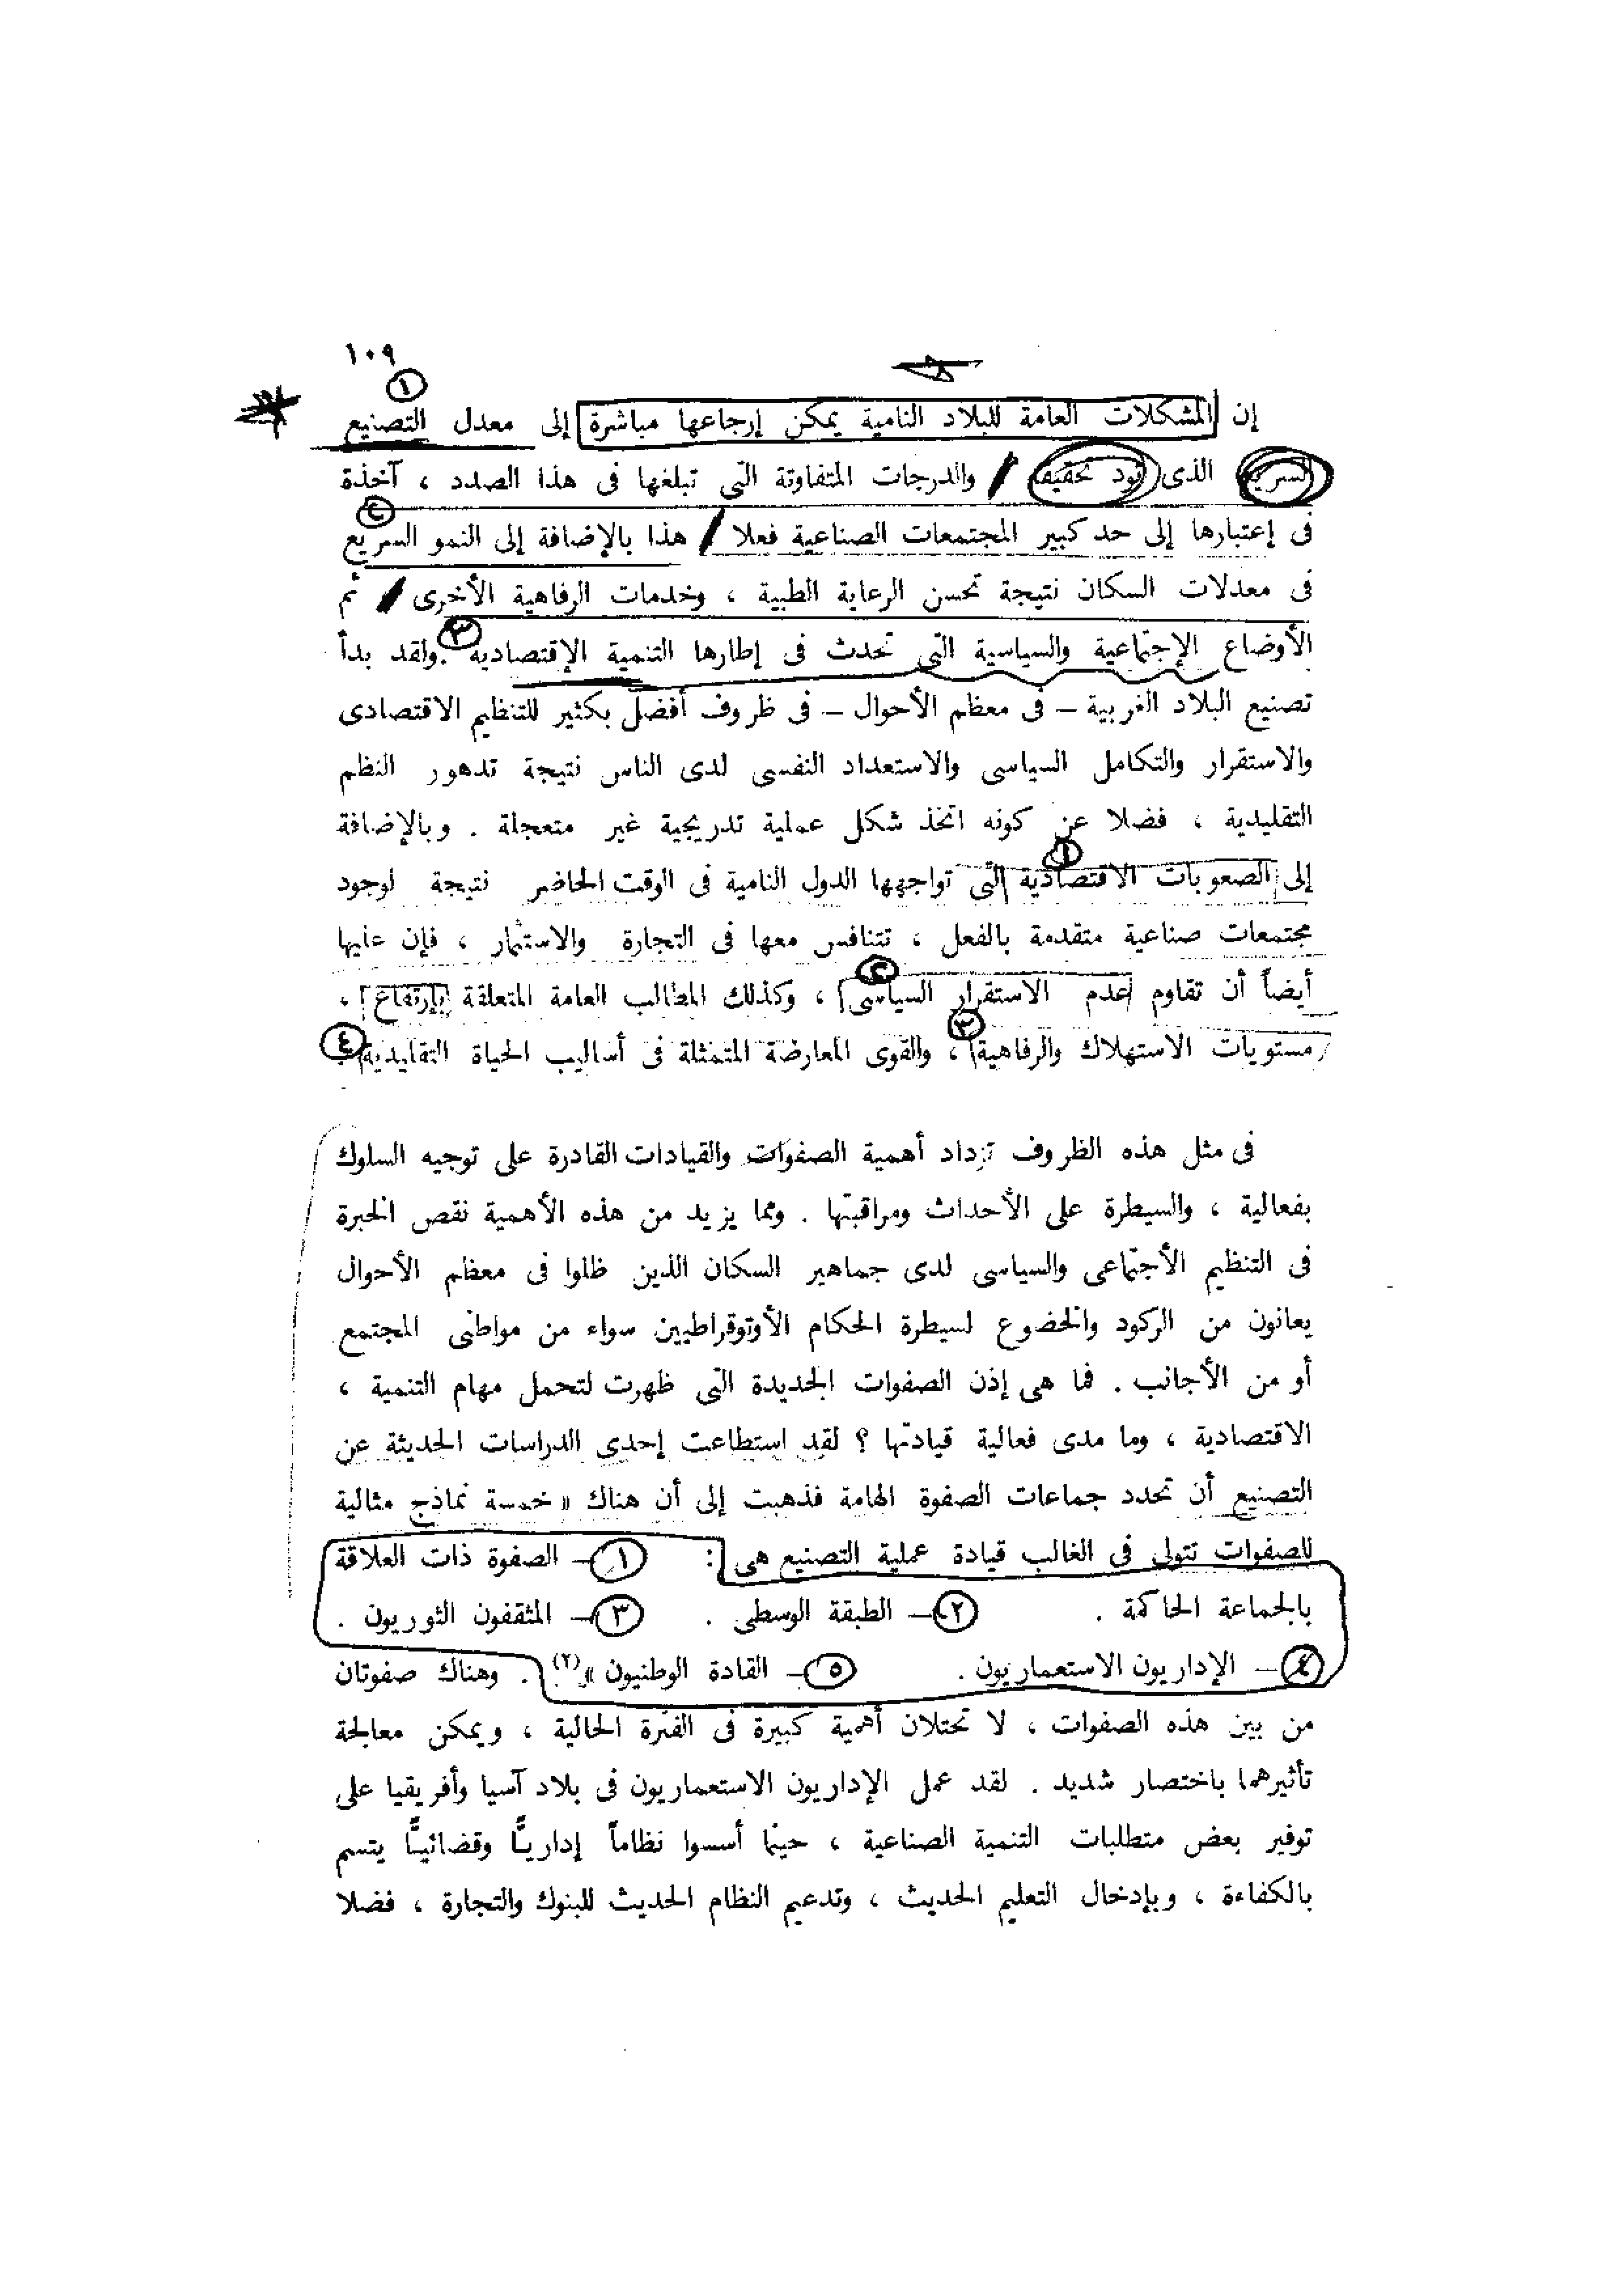 ١٠٩
١
إن المشكلات العامة للبلاد النامية يمكن إرجاعها مباشرة إلى معدل التصنيع
السريع الذى تود تحقيقه والدرجات المتفاوتة التى تبلغها فى هذا الصدد ، آخذة
٢
فى إعتبارها إلى حد كبير المجتمعات الصناعية فعلا هذا بالإضافة إلى النمو السريع
فى معدلات السكان نتيجة تحسن الرعاية الطبية ، وخدمات الرفاهية الأخرى ثم
٣
الأوضاع الإجتماعية والسياسية التى تحدث فى إطارها التنمية الإقتصادية . ولقد بدأ
تصنيع البلاد الغربية – فى معظم الأحوال – فى ظروف أفضل بكثير للتنظيم الاقتصادى
والاستقرار والتكامل السياسى والاستعداد النفسى لدى الناس نتيجة تدهور النظم
التقليدية ، فضلا عن كونه اتخذ شكل عملية تدريجية غير متعجلة . وبالإضافة
١
إلى الصعوبات الاقتصادية التى تواجهها الدول النامية فى الوقت الحاضر نتيجة لوجود
مجتمعات صناعية متقدمة بالفعل ، تتنافس معها فى التجارة والاستثمار ، فإن عليها
٢
أيضاً أن تقاوم عدم الاستقرار السياسى ، وكذلك المطالب العامة المتعلقة بإرتفاع ،
٣
مستويات الاستهلاك والرفاهية ، والقوى المعارضة المتمثلة فى أساليب الحياة التقليدية ٤
فى مثل هذه الظروف تزداد أهمية الصفوات والقيادات القادرة على توجيه السلوك
بفعالية ، والسيطرة على الأحداث ومراقبتها . ومما يزيد من هذه الأهمية نقص الخبرة
فى التنظيم الأجتماعى والسياسى لدى جماهير السكان الذين ظلوا فى معظم الأحوال
يعانون من الركود والخضوع لسيطرة الحكام الأوتوقراطيين سواء من مواطنى المجتمع
أو من الأجانب . فما هى إذن الصفوات الجديدة التى ظهرت لتحمل مهام التنمية ،
الاقتصادية ، وما مدى فعالية قيادتها ؟ لقد استطاعت إحدى الدراسات الحديثة عن
التصنيع أن تحدد جماعات الصفوة الهامة فذهبت إلى أن هناك « خمسة نماذج مثالية
للصفوات تتولى فى الغالب قيادة عملية التصنيع هى : ١ – الصفوة ذات العلاقة
بالجماعة الحاكمة . ٢ – الطبقة الوسطى . ٣ – المثقفون الثوريون .
٤ – الإداريون الاستعماريون . ٥ – القادة الوطنيون »(٢) . وهناك صفوتان
من بين هذه الصفوات ، لا تحتلان أهمية كبيرة فى الفترة الحالية ، ويمكن معالجة
تأثيرهما باختصار شديد . لقد عمل الإداريون الاستعماريون فى بلاد آسيا وأفريقيا على
توفير بعض متطلبات التنمية الصناعية ، حينما أسسوا نظاماً إداريًّا وقضائيًّا يتسم
بالكفاءة ، وبإدخال التعليم الحديث ، وتدعيم النظام الحديث للبنوك والتجارة ، فضلا